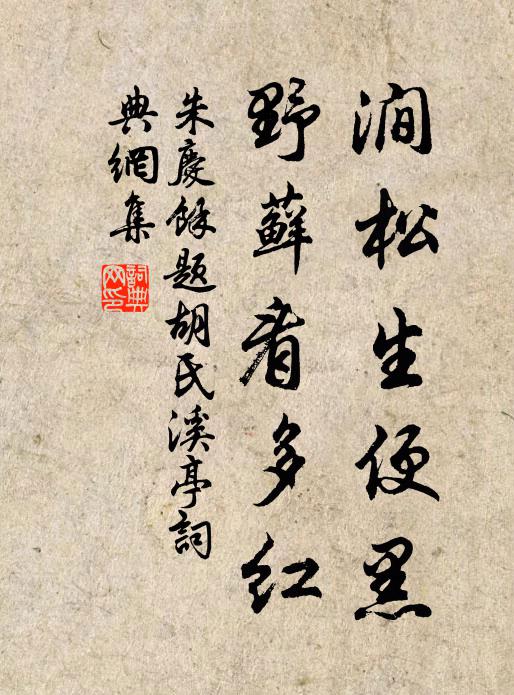 澗松生便黑
野蘚看多紅
朱慶餘題胡氏溪亭詞
典網集
詞典網印